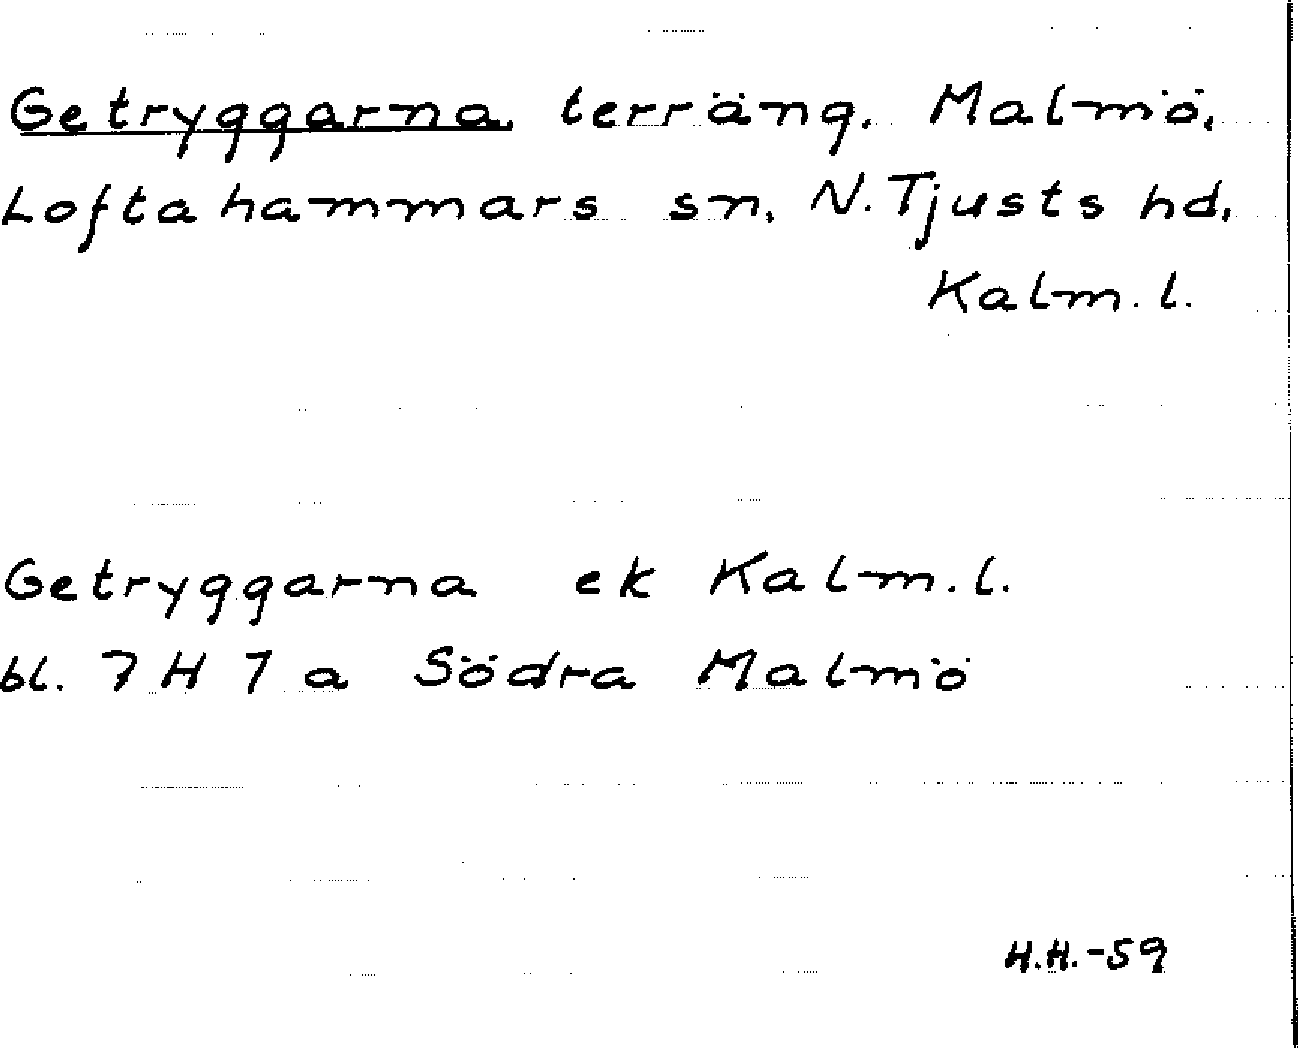 Getryggarna, terräng, Malmö,
Loftahammars sn, N. Tjusts hd,
Kalm. l.
Getryggarna ek Kalm. l.
bl. 7 H 7 a Södra Malmö
H.H.-59